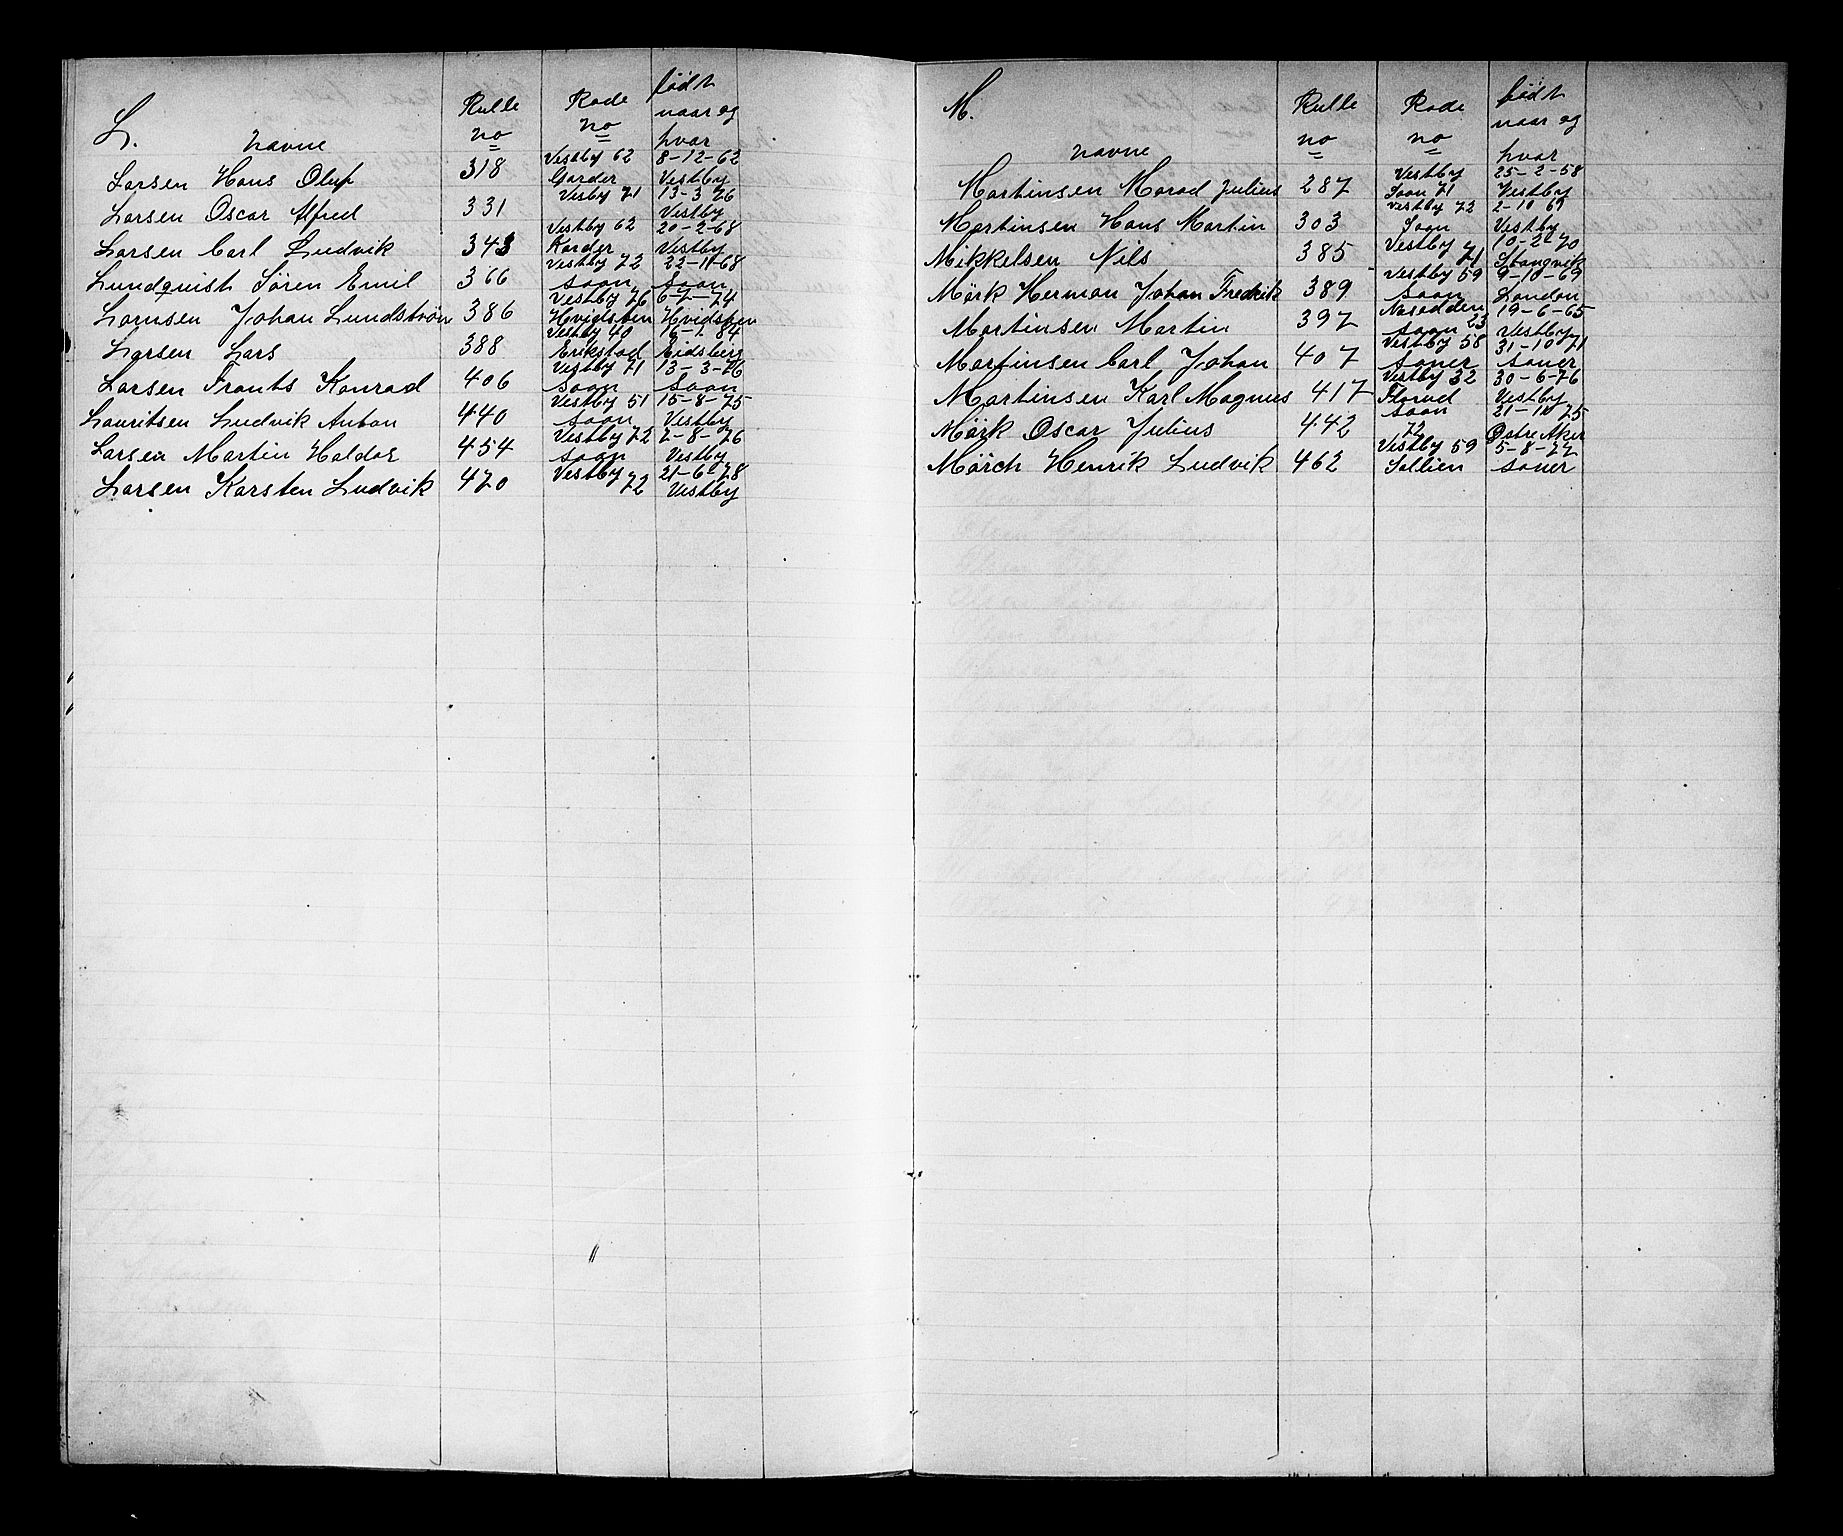 L.
Navne
Rulle
no
Rode
no
født
naar og
hvor
Larsen Hans Oluf 318 Vestby 62 Garder 8-12-62 Vestby
Larsen Oscar Alfred 331 Vesby 71 13-3-76 Vestby
Larsen Carl Ludvik 343 Vestby 62 Karder 20-2-68 Vestby
Lundquist Sören Emil 366 Vestby 72 Soon 22-11-68 Soon
Larnsen Johan Lundström 386 Vestby 76 Hvidsten 6-7-74 Hvidsten
Larsen Lars 388 Vestby 40 Erikstad 6-1 84 Eidsberg
Larsen Frants Konrad 406 Vestby 71 Soon 13-3-76 Soon
Lauritsen Ludvik Anton 440 Vestby 51 Soon 15-8-75 Vestby
Larsen Martin Haldor 454 Vestby 72 Soon 2-8-76 Vestby
Larsen Karsten Ludvik 470 Vestby 72 21-6-78 Vestby
M.
Navne
Rulle
no
Rode
no
født
naar og
hvor
Martinsen Marad Julius 287 Vestby Soon 71 25-2-58 Vestby
Martinsen Hans Martin 303 Vestby 72 Soon 2-10 69 Vestby
Mikkelsen Nils 385 Vestby 71 10-2-70 Stangvik
Mörk Herman Johan Fredrik 389 Vestby 59 Soon 9-10-69 London
Martinsen Martin 397 Nesodden Soon 23 19-6-65 Vestby
Martinsen Carl Johan 407 Vestby 58 Soner 31-10-71 Soner
Martinsen Karl Magnus 417 Vestby 32 Florud 30-6-76 Vestby
Mörk Oscar Julius 442 Soon 72 21-10 75 Østre Aker
Mörch Henrik Ludvik 462 Vestby 59 Sollien 5-8-77 Soner